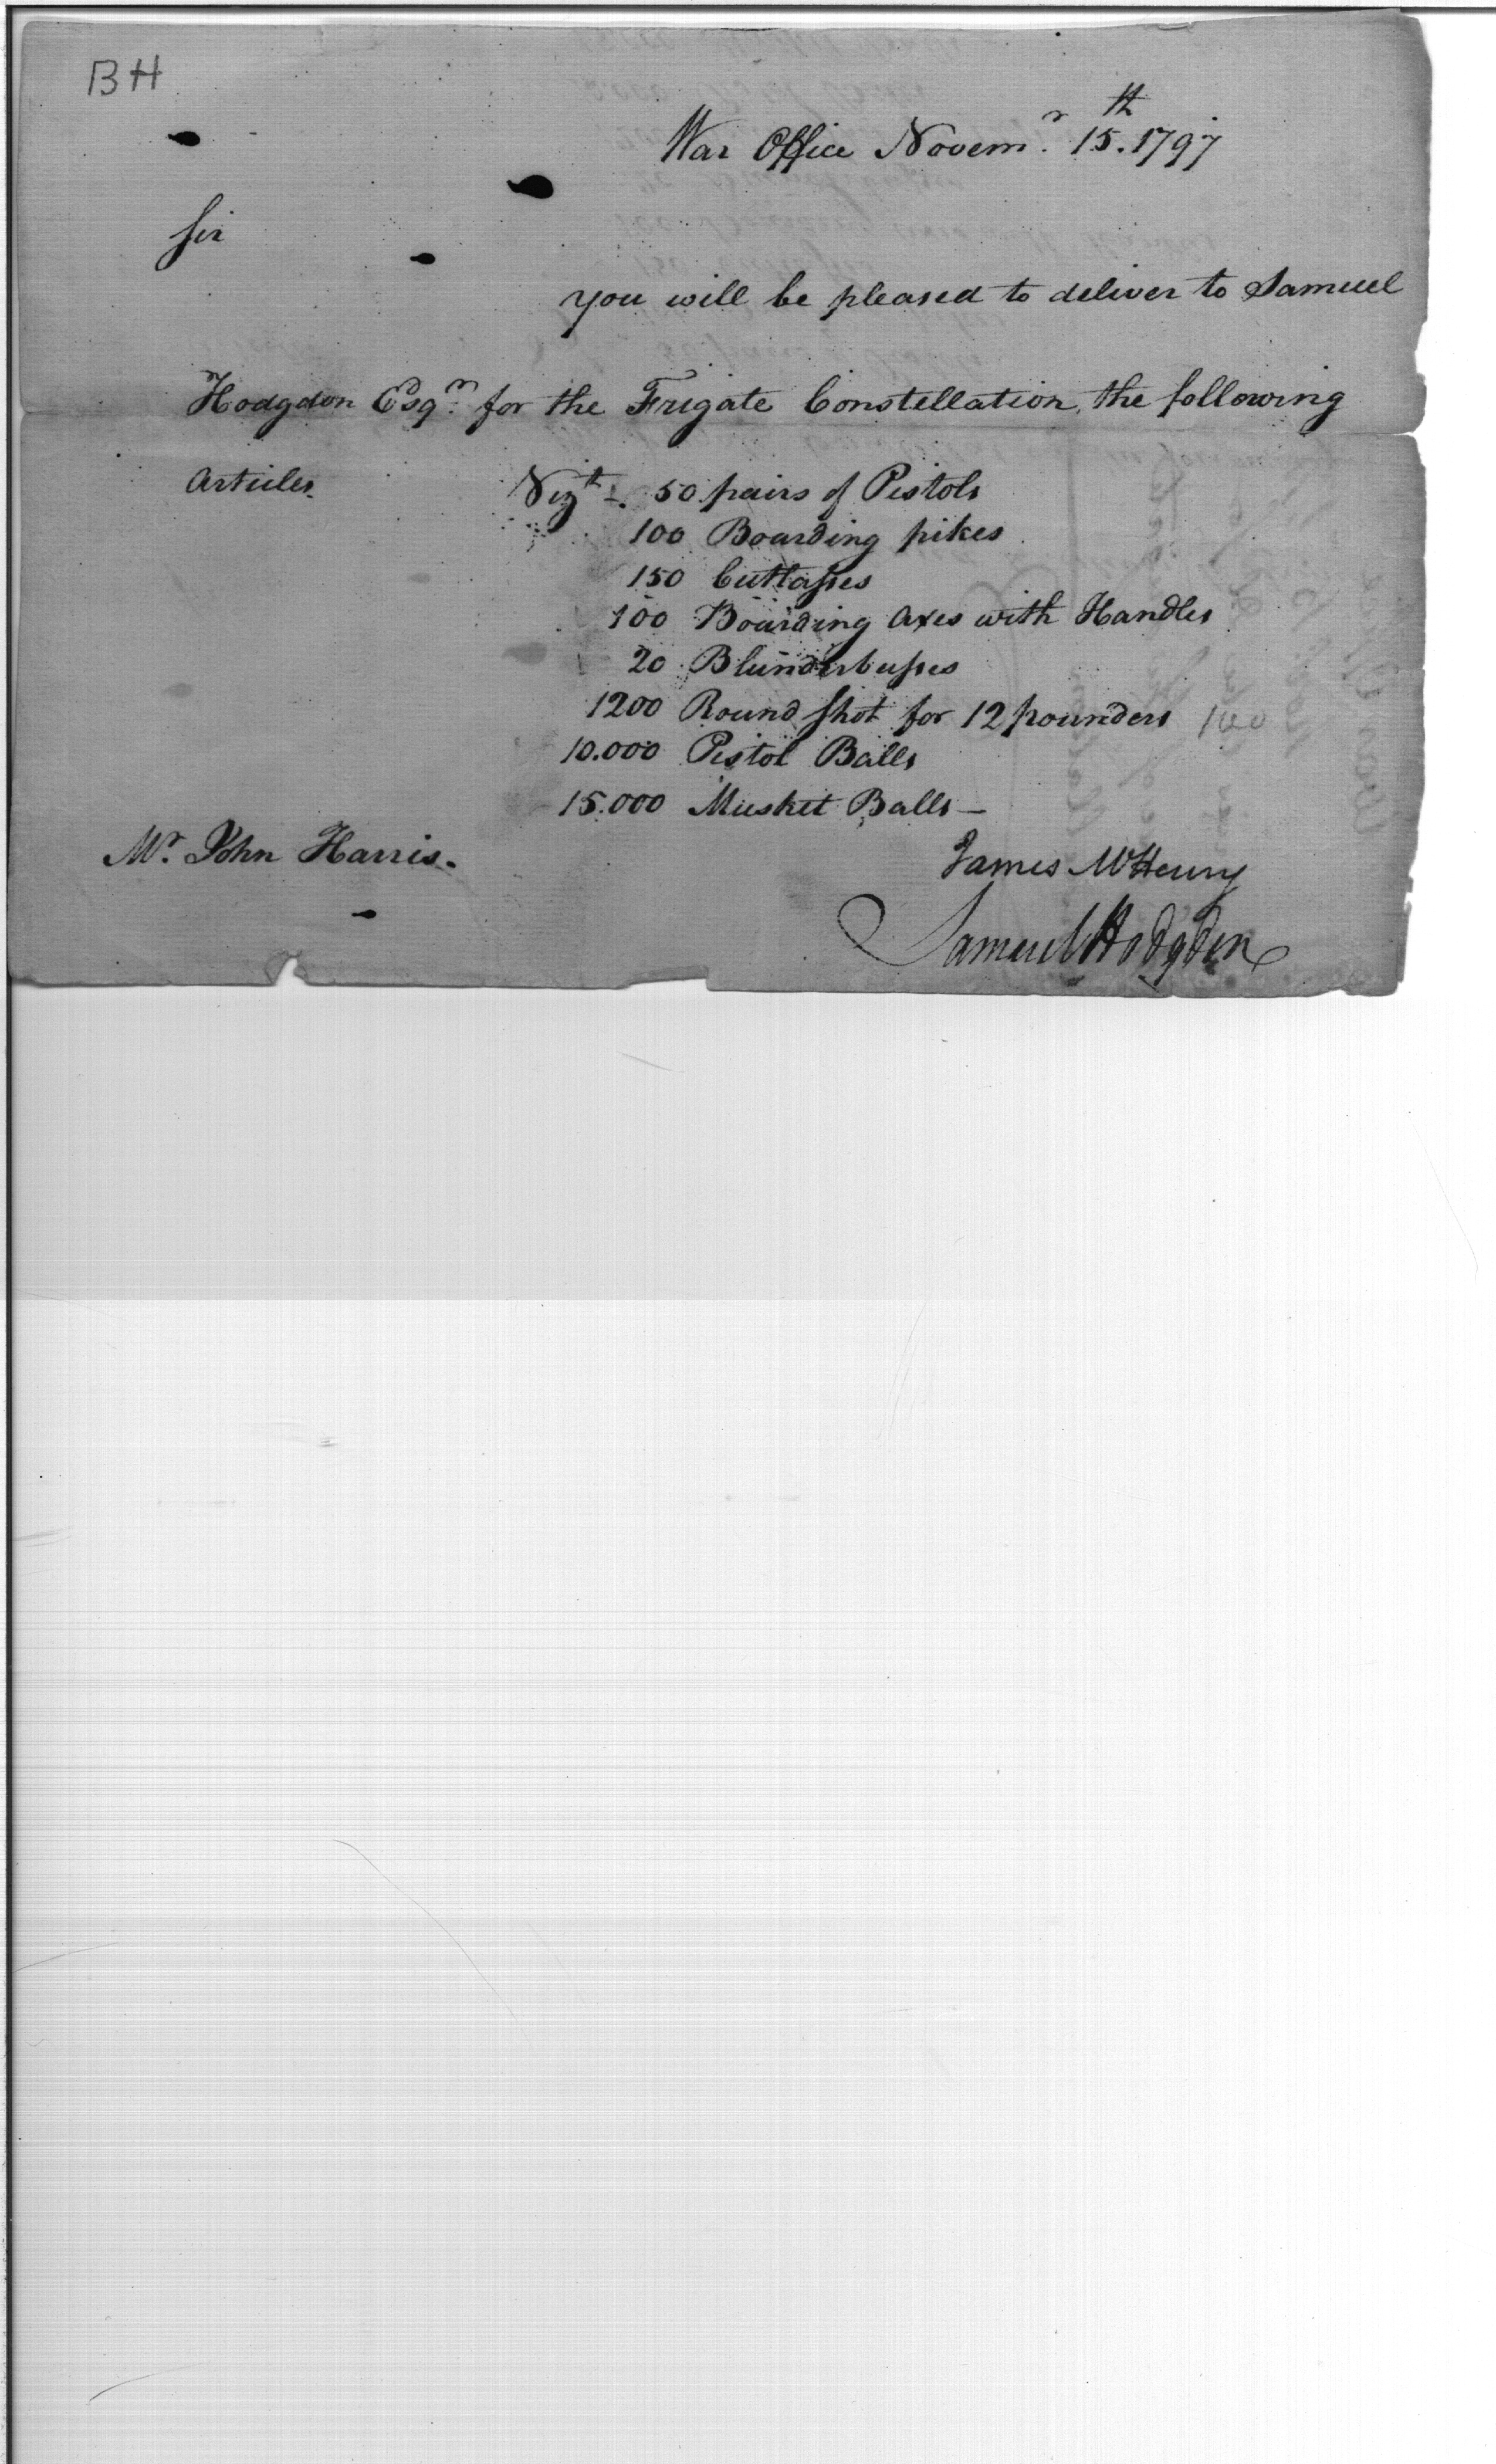 BH
War Office Novemr. 15th. 1797
Sir
you will be pleased to deliver to Samuel
Hodgdon Esqr. for the Frigate Constellation, the following
Articles. Vizt -. 50 pairs of Pistols
100 Boarding pikes
150 Cutlasses
100 Boarding Axes with Handles
20 Blunderbusses
1200 Round Shot for 12 pounders 100
10.000 Pistol Balls
15.000 Musket Balls -
Mr. John Harris.
James McHenry
Samuel Hodgdon